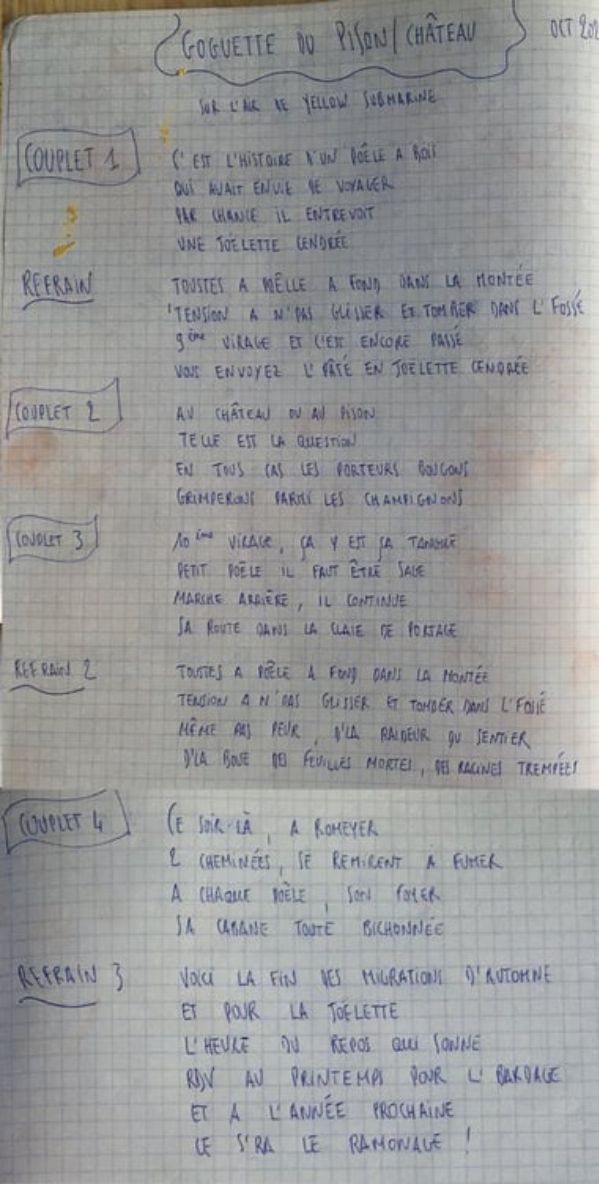 GOGUETTE DU PISON/CHÂTEAU
OCT 202
SUR L'AIR DE YELLOW SUBMARINE
COUPLET 1
C'EST L'HISTOIRE D'UN POÊLE A BOIS
QUI AVAIT ENVIE DE VOYAGER
PAR CHANCE IL ENTREVOIT
UNE JOËLETTE CENDRÉE
REFRAIN
TOUSTES A POÊLLE A FOND DANS LA MONTÉE
'TENSION A N'PAS GLISSER ET TOMBER DANS L'FOSSÉ
9ème VIRAGE ET C'EST ENCORE PASSÉ
VOUS ENVOYEZ L'PÂTÉ EN JOËLETTE CENDRÉE
COUPLET 2
AU CHÂTEAU OU AU PISON
TELLE EST LA QUESTION
EN TOUS CAS LES PORTEURS BOUGONS
GRIMPERONS PARMI LES CHAMPIGNONS
COUPLET 3
10ème VIRAGE, ÇA Y EST ÇA TANGUE
PETIT POÊLE IL FAUT ÊTRE SAGE
MARCHE ARRIÈRE, IL CONTINUE
SA ROUTE DANS LA CLAIE DE PORTAGE
REFRAIN 2
TOUTES A POÊLE A FOND DANS LA MONTÉE
TENSION A N'PAS GLISSER ET TOMBER DANS L'FOSSÉ
MÊME PAS PEUR, D'LA RAIDEUR DU SENTIER
D'LA BOUE DES FEUILLES MORTES, DES RACINES TREMPÉES
COUPLET 4
CE SOIR-LÀ, A ROMEYER
2 CHEMINÉES, SE REMIRENT A FUMER
A CHAQUE POÊLE, SON FOYER
SA CABANE TOUTE BICHONNÉE
REFRAIN 3
VOICI LA FIN DES MIGRATIONS D'AUTOMNE
ET POUR LA JOËLETTE
L'HEURE DU REPOS QUI SONNE
RDV AU PRINTEMPS POUR L'BARDAGE
ET A L'ANNÉE PROCHAINE
CE S'RA LE RAMONAGE !